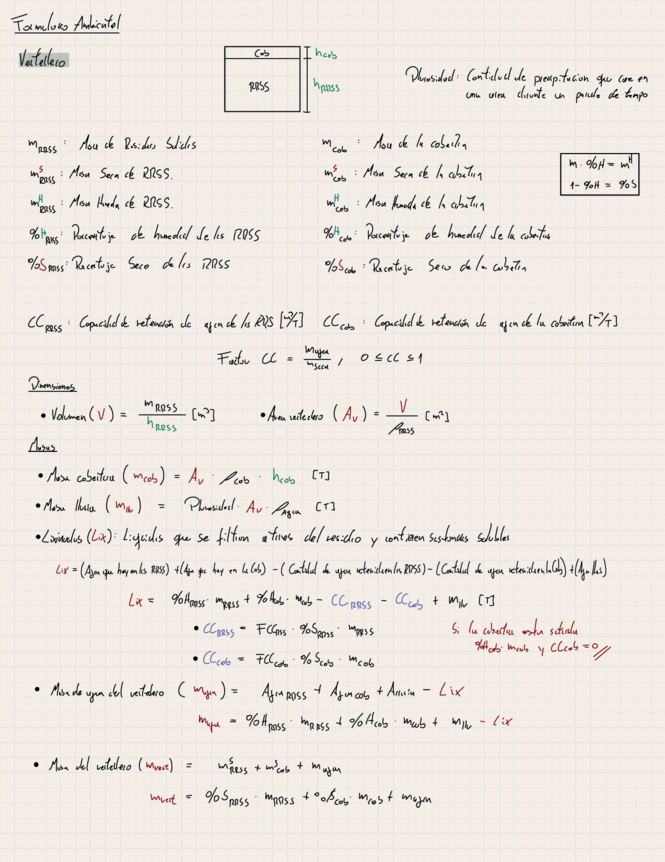 Formulario Ambiental
Vertedero
Cob
h_cob
RRSS
h_RRSS
Pluviosidad: Cantidad de precipitación que cae en
una area durante un periodo de tiempo
m_RRSS : Masa de Residuos Solidos
m_cob : Masa de la cobertura
m^S_RRSS : Masa Seca de RRSS.
m^S_cob : Masa Seca de la cobertura
m · %H = m^H
1 - %H = %S
m^H_RRSS : Masa Humeda de RRSS.
m^H_cob : Masa Humeda de la cobertura
%H_RRSS : Porcentaje de humedad de los RRSS
%H_cob : Porcentaje de humedad de la cobertura
%S_RRSS : Porcentaje Seco de los RRSS
%S_cob : Porcentaje Seco de la cobertura
CC_RRSS : Capacidad de retención de agua de los RRSS [m³/T]
CC_cob : Capacidad de retención de agua de la cobertura [m³/T]
Factor CC = m_agua / m_seca , 0 ≤ CC ≤ 1
Dimensiones
• Volumen (V) = m_RRSS / h_RRSS [m³]
• Area vertedero (A_v) = V / ρ_RRSS [m²]
Masas
• Masa cobertura (m_cob) = A_v · ρ_cob · h_cob [T]
• Masa lluvia (m_llv) = Pluviosidad · A_v · ρ_Agua [T]
• Lixiviados (Lix): Liquidos que se filtran a traves del residuo y contienen sustancias solubles
Lix = (Agua que hay en los RRSS) + (Agua que hay en la Cob) - (Cantidad de agua retenida en los RRSS) - (Cantidad de agua retenida en la Cob) + (Agua lluvia)
Lix = %H_RRSS · m_RRSS + %H_cob · m_cob - CC_RRSS - CC_cob + m_llv [T]
• CC_RRSS = FCC_RRSS · %S_RRSS · m_RRSS
Si la cobertura esta saturada
%H_cob · m_cob y CC_cob = 0 //
• CC_cob = FCC_cob · %S_cob · m_cob
• Masa de agua del vertedero (m_agua) = Agua_RRSS + Agua_cob + Alluvia - Lix
m_agua = %H_RRSS · m_RRSS + %H_cob · m_cob + m_llv - Lix
• Masa del vertedero (m_vert) = m^S_RRSS + m^S_cob + m_agua
m_vert = %S_RRSS · m_RRSS + %S_cob · m_cob + m_agua